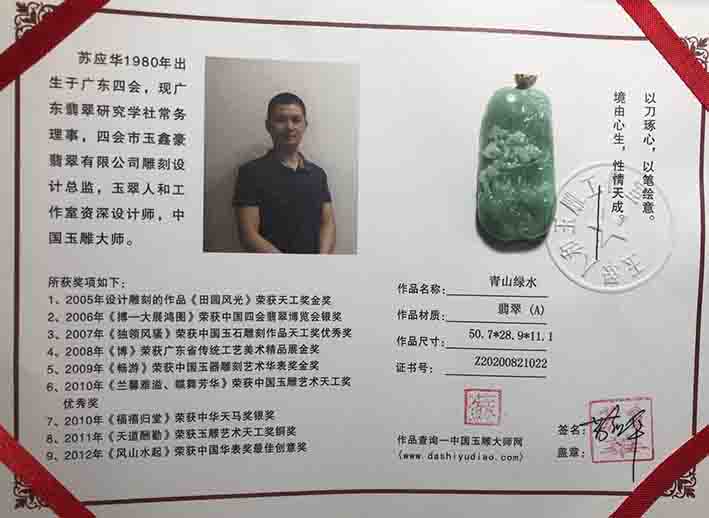 苏应华1980年出
生于广东四会，现广
东翡翠研究学社常务
理事，四会市玉鑫豪
翡翠有限公司雕刻设
计总监，玉翠人和工
作室资深设计师，中
国玉雕大师。
以刀琢心，以笔绘意。
境由心生，性情天成。
所获奖项如下：
1、2005年设计雕刻的作品《田园风光》荣获天工奖金奖
2、2006年《搏一大展鸿图》荣获中国四会翡翠博览会银奖
3、2007年《独领风骚》荣获中国玉石雕刻作品天工奖优秀奖
4、2008年《博》荣获广东省传统工艺美术精品展金奖
5、2009年《畅游》荣获中国玉器雕刻艺术华表奖金奖
6、2010年《兰馨雅溢、蝶舞芳华》荣获中国玉雕艺术天工奖
优秀奖
7、2010年《福禧归堂》荣获中华天马奖银奖
8、2011年《天道酬勤》荣获玉雕艺术天工奖铜奖
9、2012年《风山水起》荣获中国华表奖最佳创意奖
作品名称：青山绿水
作品材质：翡翠 (A)
作品尺寸：50.7*28.9*11.1
证书号：Z20200821022
作品查询—中国玉雕大师网
(www.dashiyudiao.com)
签名：
盖章：